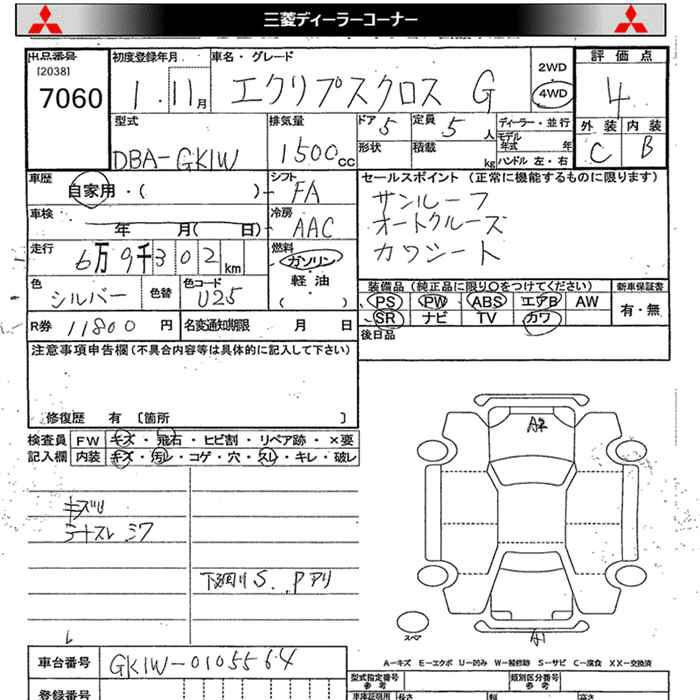 三菱ディーラーコーナー
出品番号 初度登録年月 車名・グレード 2WD 評価点
[2038]
7060 1.11月 エクリプスクロス G 4WD 4
型式 排気量 ドア 5 定員 5人 ディーラー・並行 外装 内装
DBA-GK1W 1500cc 形状 積載 kg モデル年式 年 C B
ハンドル 左・右
車歴 シフト セールスポイント (正常に機能するものに限ります)
自家用・( ) FA サンルーフ
車検 年 月( 日) 冷房 AAC オートクルーズ
走行 6万9千302km 燃料 ガソリン カワシート
軽・油
( )
色 シルバー 色替 色コード U25
装備品 (純正品に限り○をつけてください) 新車保証書
PS PW ABS エアB AW 有・無
SR ナビ TV カワ
R券 11800円 名変通知期限 月 日 後日品
注意事項申告欄 (不具合内容等は具体的に記入して下さい)
修復歴 有 [箇所 ]
検査員 FW キズ・飛石・ヒビ割・リペア跡・×要
記入欄 内装 キズ・汚レ・コゲ・穴・スレ・キレ・破レ
A2
キズU
シートスレ シワ
下回りS. Pアリ
スペア
A1
A-キズ E-エクボ U-凹み W-補修跡 S-サビ C-腐食 XX-交換済
車台番号 GK1W-0105564
型式指定番号 参考 類別区分番号 参考
登録番号 車庫証明用 長さ 幅 高さ